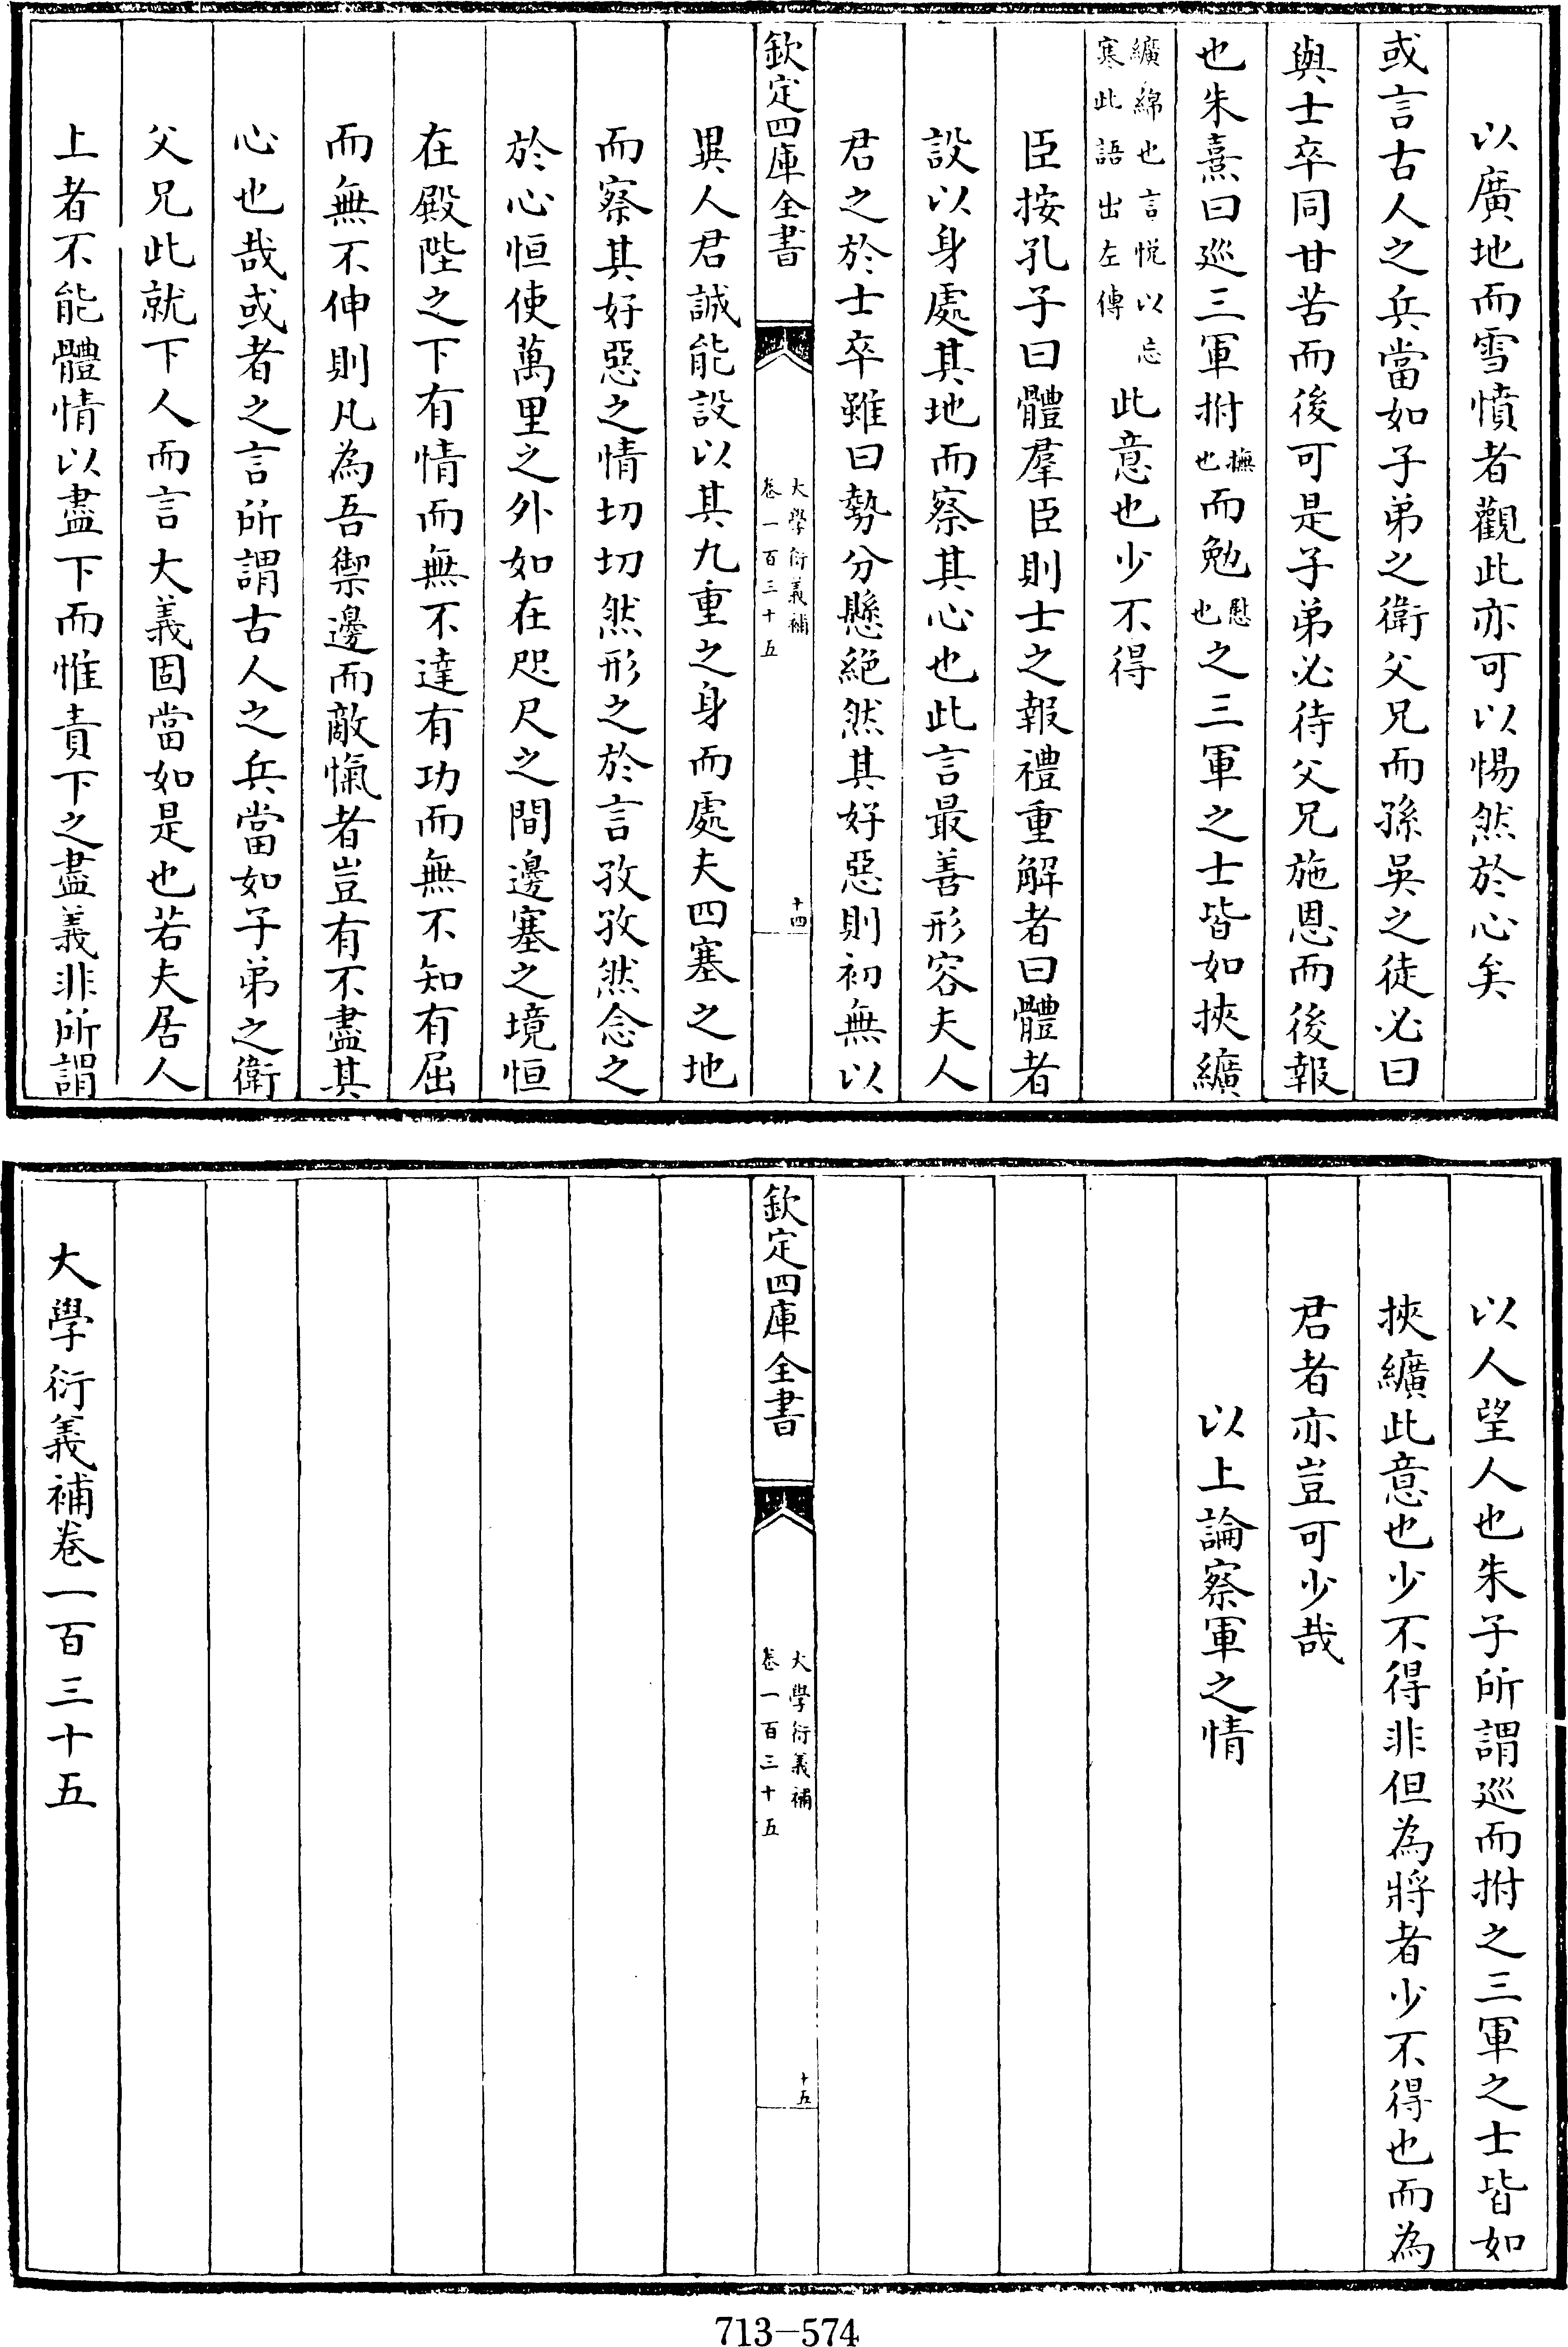 以廣地而雪憤者觀此亦可以惕然於心矣
或言古人之兵當如子弟之衛父兄而孫吳之徒必曰
與士卒同甘苦而後可是子弟必待父兄施恩而後報
也朱熹曰巡三軍拊撫也而勉慰也之三軍之士皆如挾纊
纊綿也言悅以忘寒此語出左傳此意也少不得
臣按孔子曰體羣臣則士之報禮重解者曰體者
設以身處其地而察其心也此言最善形容夫人
君之於士卒雖曰勢分懸絕然其好惡則初無以
欽定四庫全書
大學衍義補
卷一百三十五
十四
異人君誠能設以其九重之身而處夫四塞之地
而察其好惡之情切切然形之於言孜孜然念之
於心恒使萬里之外如在咫尺之間邊塞之境恒
在殿陛之下有情而無不達有功而無不知有屈
而無不伸則凡為吾禦邊而敵愾者豈有不盡其
心也哉或者之言所謂古人之兵當如子弟之衛
父兄此就下人而言大義固當如是也若夫居人
上者不能體情以盡下而惟責下之盡義非所謂
以人望人也朱子所謂巡而拊之三軍之士皆如
挾纊此意也少不得非但為將者少不得也而為
君者亦豈可少哉
以上論察軍之情
欽定四庫全書
大學衍義補
卷一百三十五
十五
大學衍義補卷一百三十五
713-574